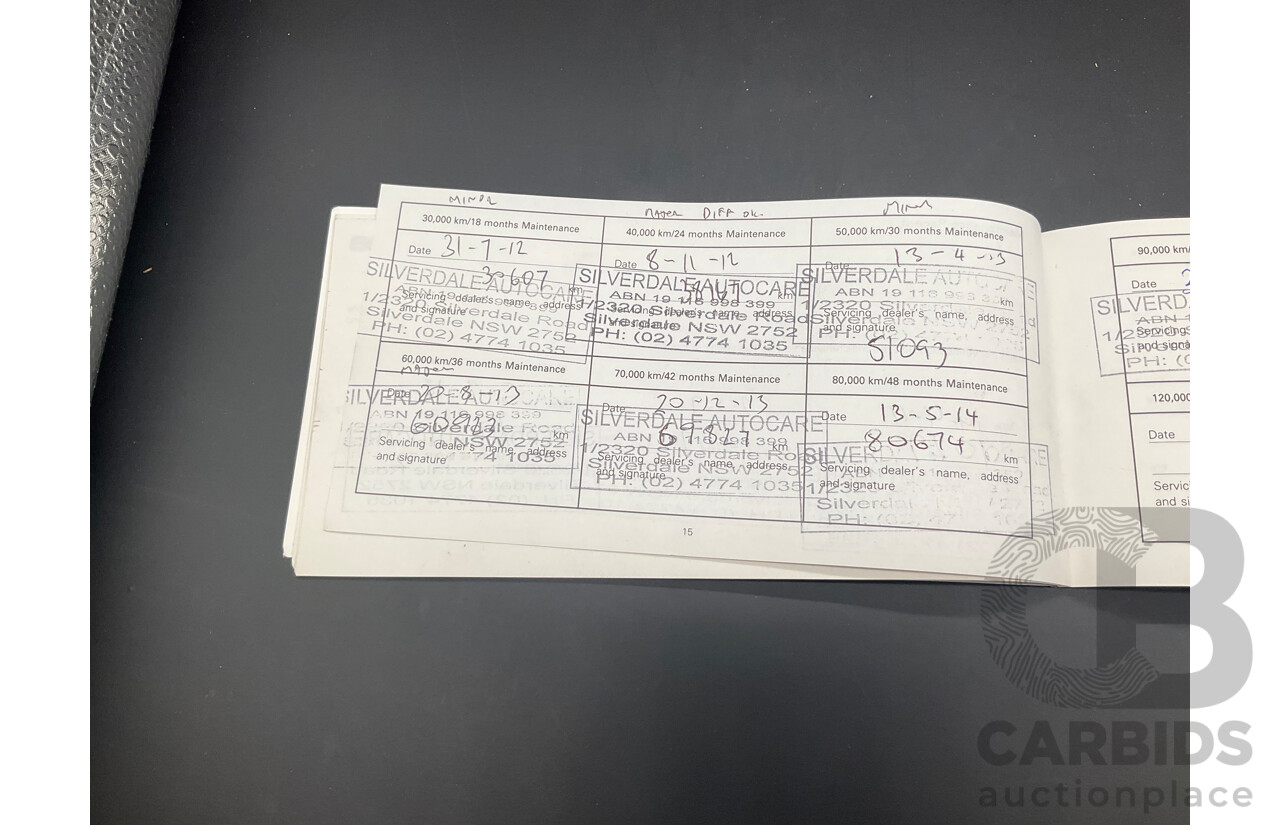 MINOR
30,000 km/18 months Maintenance
Date 31-7-12
30607 km
SILVERDALE AUTOCARE
ABN 19 118 998 399
1/2320 Silverdale Road
Silverdale NSW 2752
PH: (02) 4774 1035
Servicing dealer's name, address
and signature
MAJOR DIFF OK.
40,000 km/24 months Maintenance
Date 8-11-12
km
SILVERDALE AUTOCARE
ABN 19 118 998 399
1/2320 Silverdale Road
Silverdale NSW 2752
PH: (02) 4774 1035
Servicing dealer's name, address
and signature
MINOR
50,000 km/30 months Maintenance
Date 13-4-13
SILVERDALE AUTO
ABN 19 118 998 3
km
1/2320 Silverdale
Servicing dealer's name, address
Silverdale
and signature
PH:
51093
60,000 km/36 months Maintenance
MAJOR
Date -8-13
km
SILVERDALE AUTOCARE
ABN 19 118 998 399
Silverdale Road
NSW 2752
Servicing dealer's name, address
and signature
4774 1035
70,000 km/42 months Maintenance
Date 20-12-13
km
SILVERDALE AUTOCARE
ABN 19 118 998 399
1/2320 Silverdale Road
Silverdale NSW 2752
PH: (02) 4774 1035
Servicing dealer's name, address
and signature
80,000 km/48 months Maintenance
Date 13-5-14
80674 km
SILVER
Servicing dealer's name, address
and signature
1/2320
Silverdal
PH:
15
90,000 km/
Date
SILVERD
ABN 1
Servicing
and signa
PH: (
120,000
Date
Servic
and si
CB
CARBIDS
auctionplace